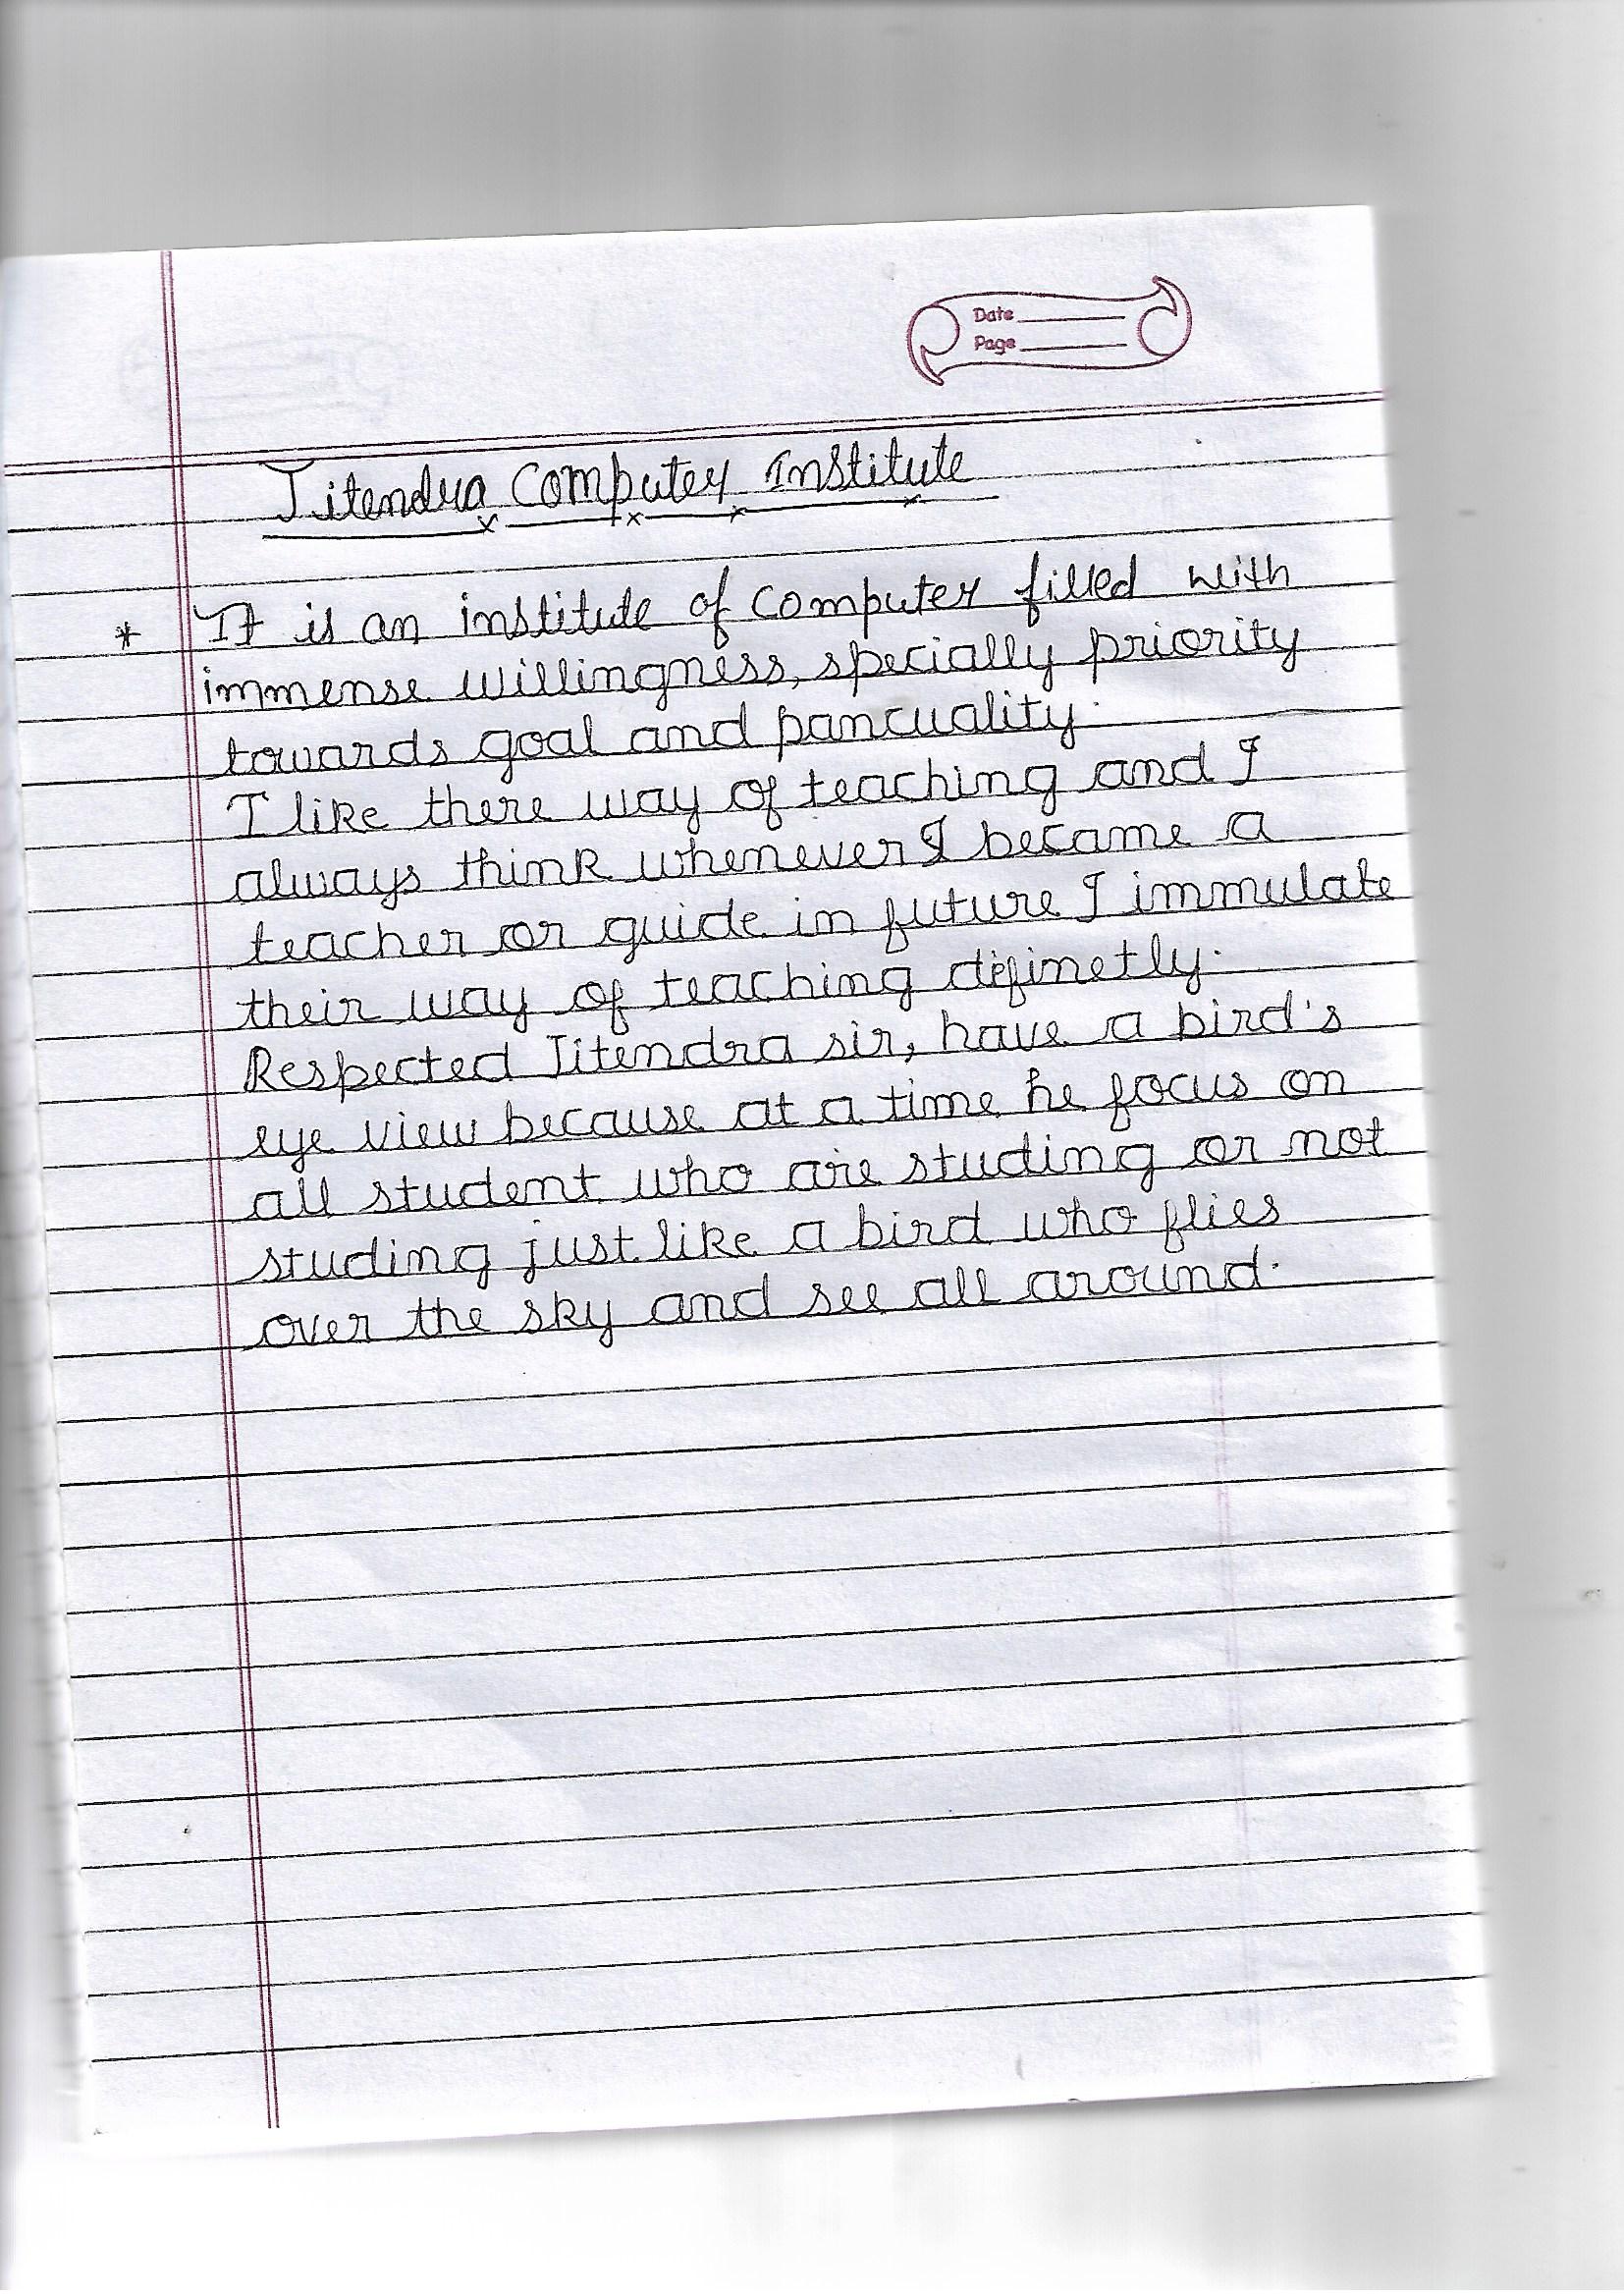 Date
Page
Jitendra Computer Institute
* It is an institute of Computer filled with
immense willingness, specially priority
towards goal and pancuality.
I like there way of teaching and I
always think whenever I became a
teacher or guide in future I immulate
their way of teaching difinetly.
Respected Jitendra sir, have a bird's
eye view because at a time he focus on
all student who are studing or not
studing just like a bird who flies
over the sky and see all around.